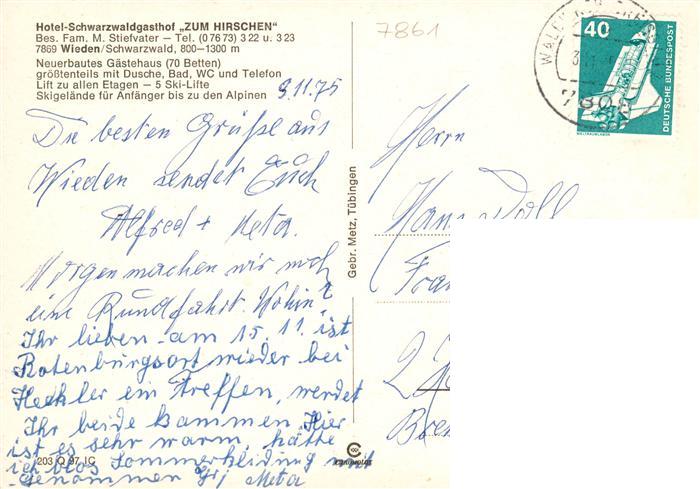 Hotel-Schwarzwaldgasthof „ZUM HIRSCHEN"
Bes. Fam. M. Stiefvater – Tel. (0 76 73) 3 22 u. 3 23
7869 Wieden/Schwarzwald, 800–1300 m
Neuerbautes Gästehaus (70 Betten)
größtenteils mit Dusche, Bad, WC und Telefon
Lift zu allen Etagen – 5 Ski-Lifte
Skigelände für Anfänger bis zu den Alpinen
9.11.75
Die besten Grüße aus
Wieden sendet Euch
Alfred + Meta.
Morgen machen wir noch
eine Rundfahrt. Wohin?
Ihr lieben am 15. 11. ist
Rotenburgsort wieder bei
Heckler ein Treffen, werdet
Ihr beide kammen. Hier
ist es sehr warm, hätte
ich blos Sommerkleidung mit
genommen Grß Meta
203 Q 97 IC
Gebr. Metz, Tübingen
7861
40
DEUTSCHE BUNDESPOST
WELTRAUMLABOR
Herrn
Hans
Fran
2
Brem